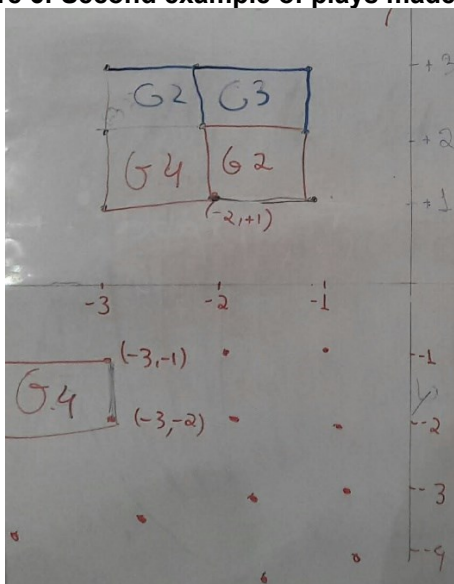 Second example of plays made
+3
G2 G3
+2
G4 G2
+1
(-2,+1)
-3 -2 -1
(-3,-1) -1
G.4
(-3,-2) -2
-3
-4